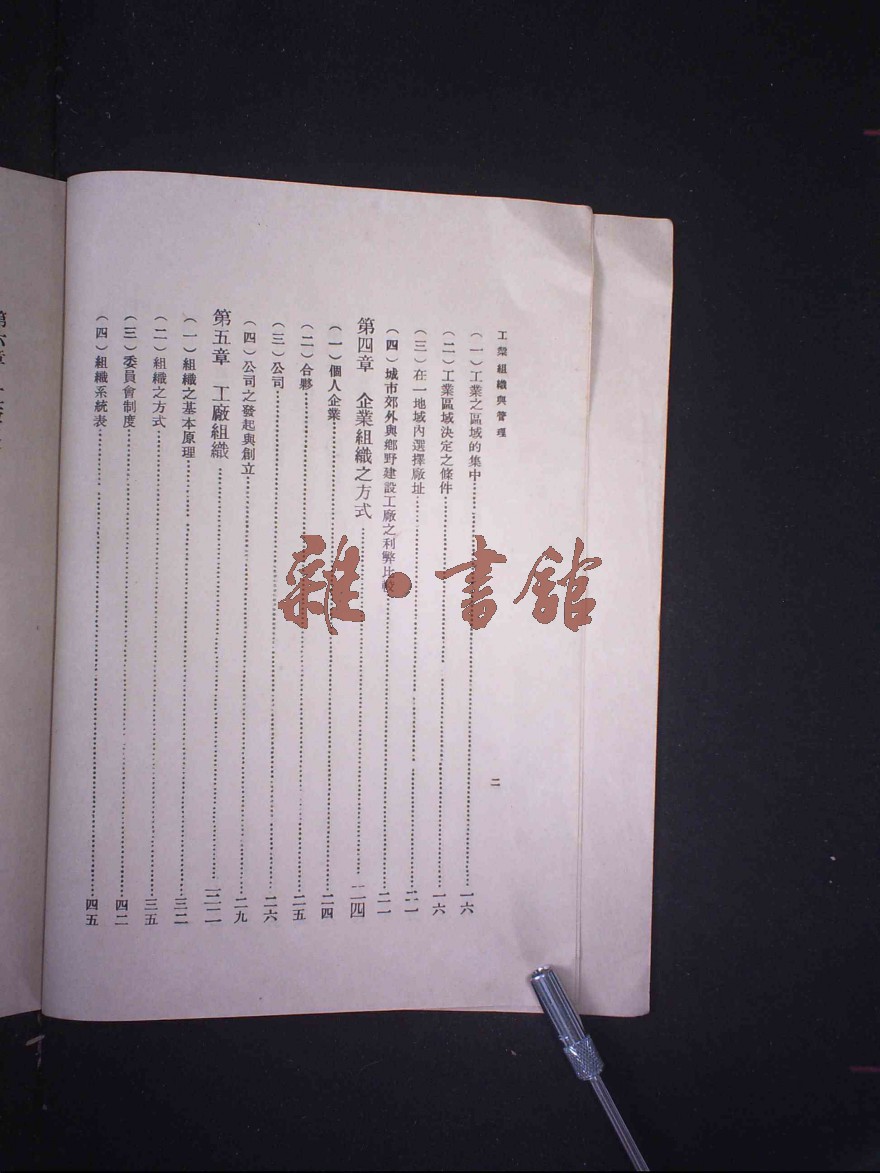 工業組織與管理
二
（一）工業之區域的集中……一六
（二）工業區域決定之條件……一六
（三）在一地域内選擇廠址……二一
（四）城市郊外與鄉野建設工廠之利弊比較……二一
第四章　企業組織之方式……二四
（一）個人企業……二四
（二）合夥……二五
（三）公司……二六
（四）公司之發起與創立……二九
第五章　工廠組織……三二
（一）組織之基本原理……三二
（二）組織之方式……三五
（三）委員會制度……四二
（四）組織系統表……四五
第六章
雜·書館